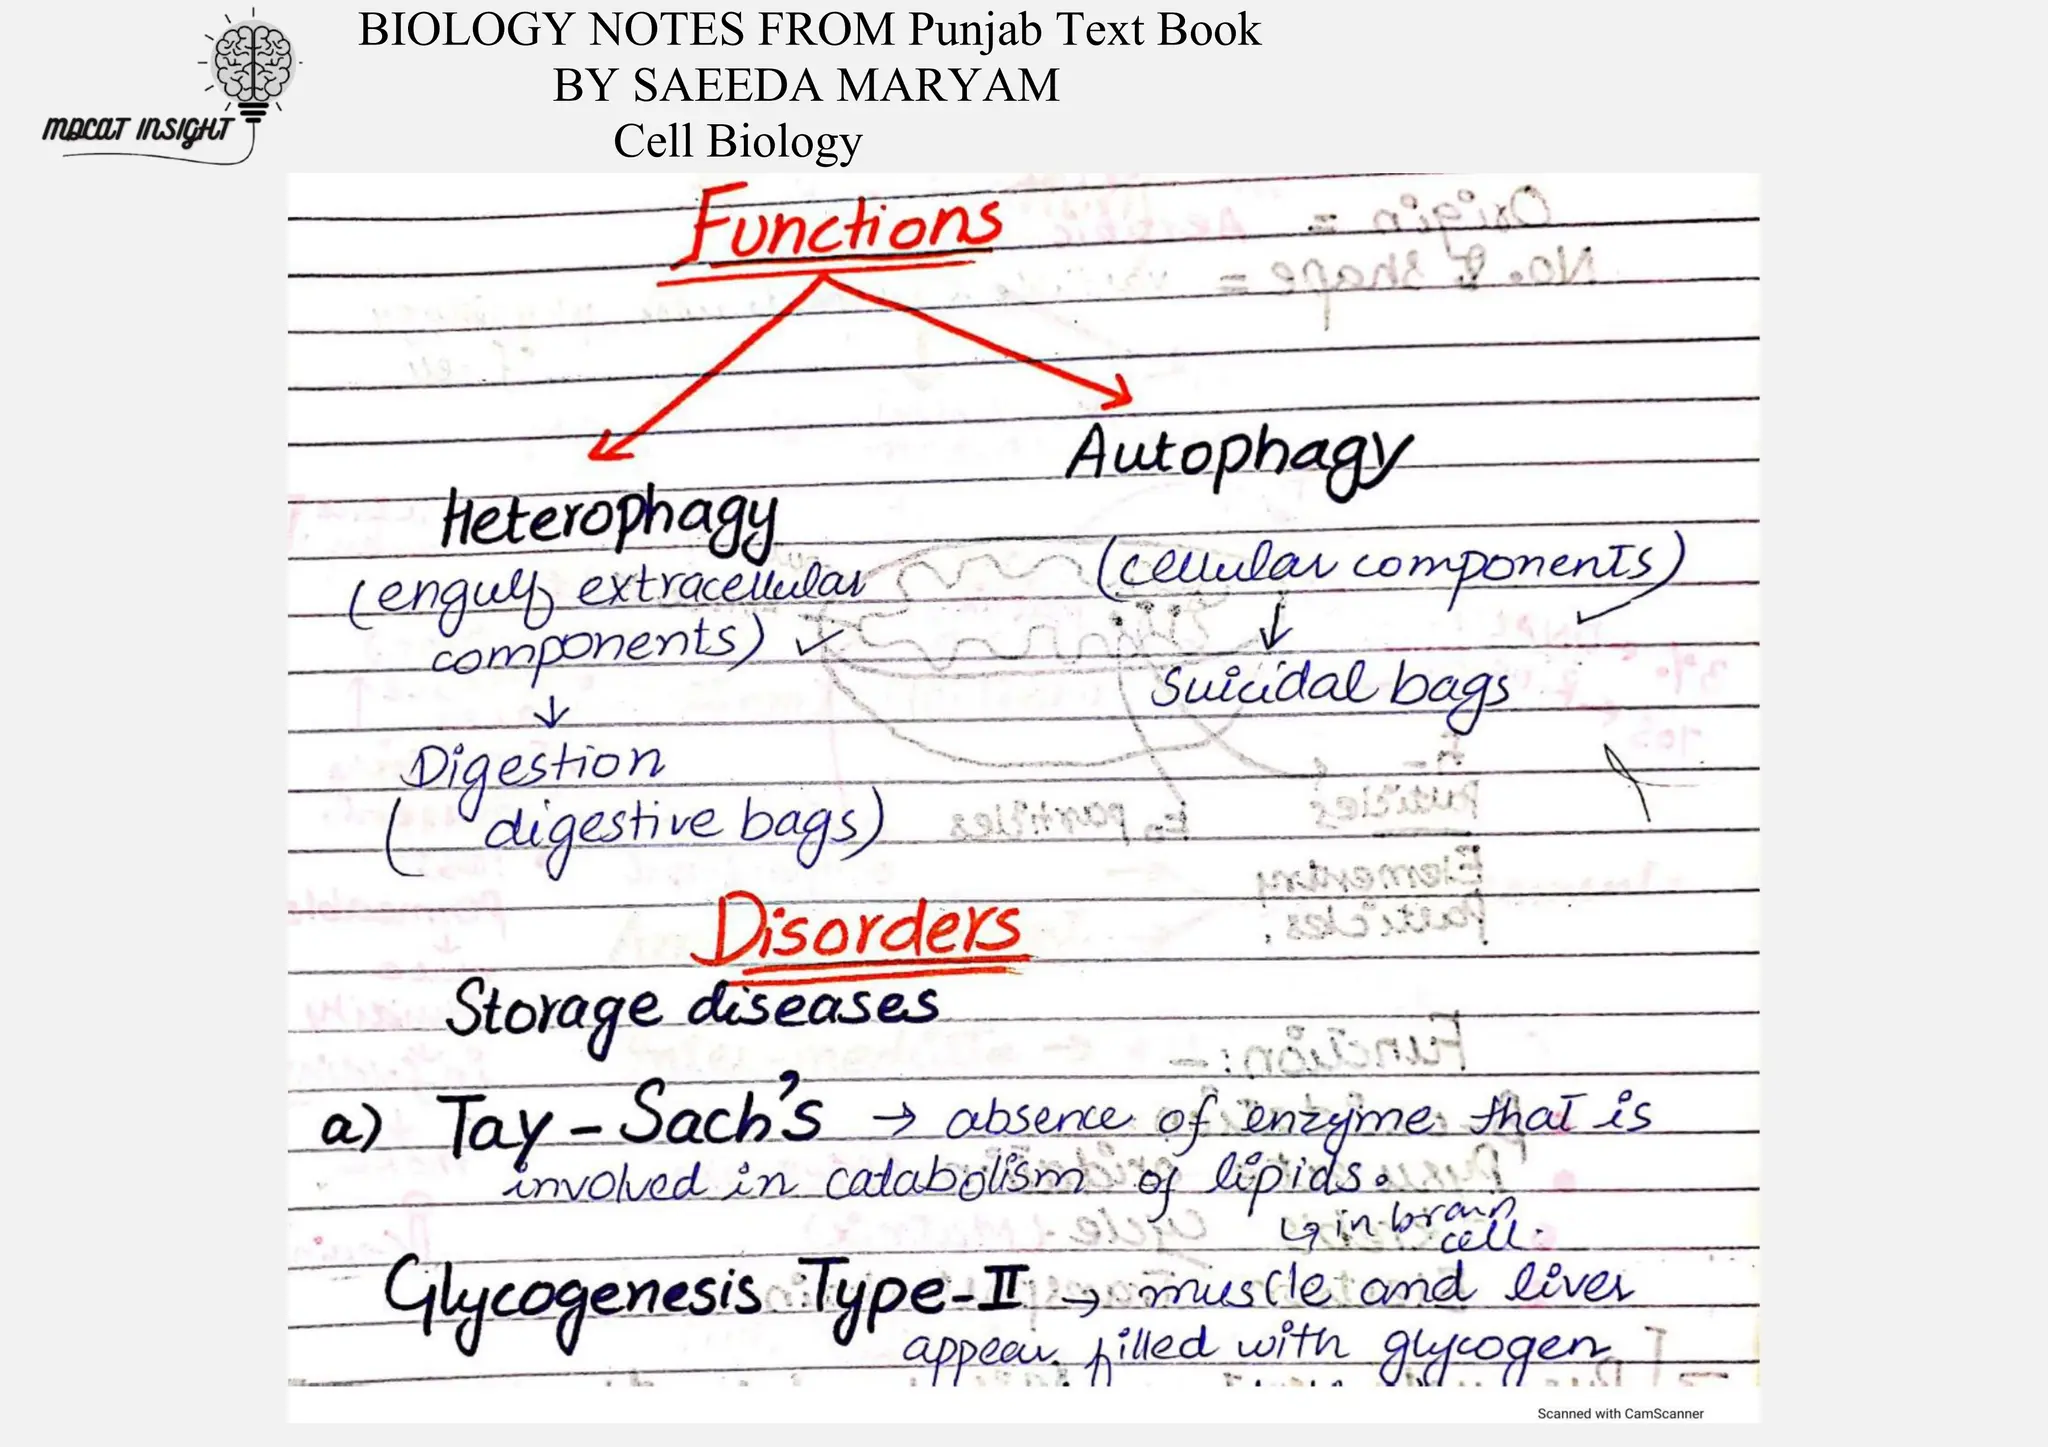 BIOLOGY NOTES FROM Punjab Text Book
BY SAEEDA MARYAM
Cell Biology
MDCAT INSIGHT
Functions
Heterophagy
(engulf extracellular
components) ✓
↓
Digestion
(digestive bags)
Autophagy
(cellular components) ✓
↓
Suicidal bags
Disorders
Storage diseases
a) Tay-Sach's → absence of enzyme that is
involved in catabolism of lipids.
↳ in brain
cell.
Glycogenesis Type-II → muscle and liver
appear filled with glycogen
Scanned with CamScanner